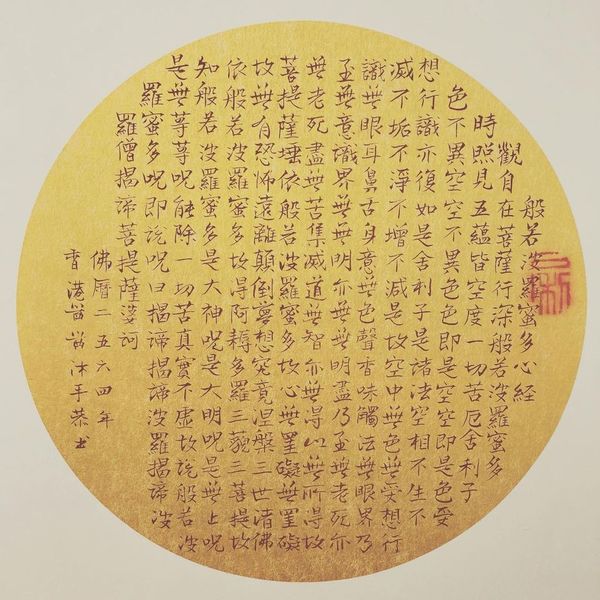 般若波羅蜜多心經
觀自在菩薩行深般若波羅蜜多
時照見五蘊皆空度一切苦厄舍利子
色不異空空不異色色即是空空即是色受
想行識亦復如是舍利子是諸法空相不生不
滅不垢不淨不增不減是故空中無色無受想行
識無眼耳鼻舌身意無色聲香味觸法無眼界乃
至無意識界無無明亦無無明盡乃至無老死亦
無老死盡無苦集滅道無智亦無得以無所得故
菩提薩埵依般若波羅蜜多故心無罣礙無罣礙
故無有恐怖遠離顛倒夢想究竟涅槃三世諸佛
依般若波羅蜜多故得阿耨多羅三藐三菩提故
知般若波羅蜜多是大神呪是大明呪是無上呪
是無等等呪能除一切苦真實不虛故說般若波
羅蜜多呪即說呪曰揭諦揭諦波羅揭諦波
羅僧揭諦菩提薩婆訶
佛曆二五六四年
香港沐手恭书